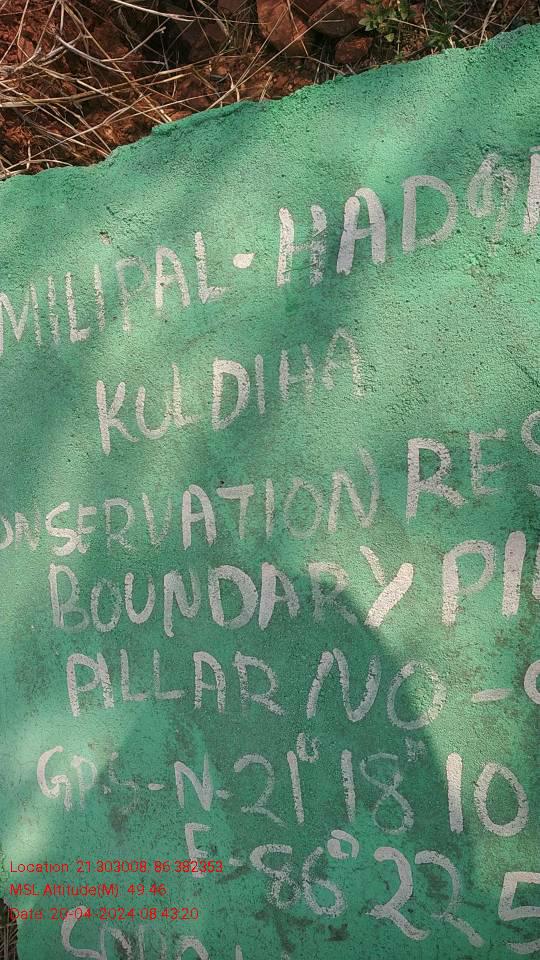 MILIPAL-HADG
KULDIHA
ONSERVATION RES
BOUNDARY PIL
PILLAR NO-
GPS-N-21°18"10
E-86°22 5
Location: 21.303008, 86.382353
MSL Altitude(M): 49.46
Date: 20-04-2024 08:43:20